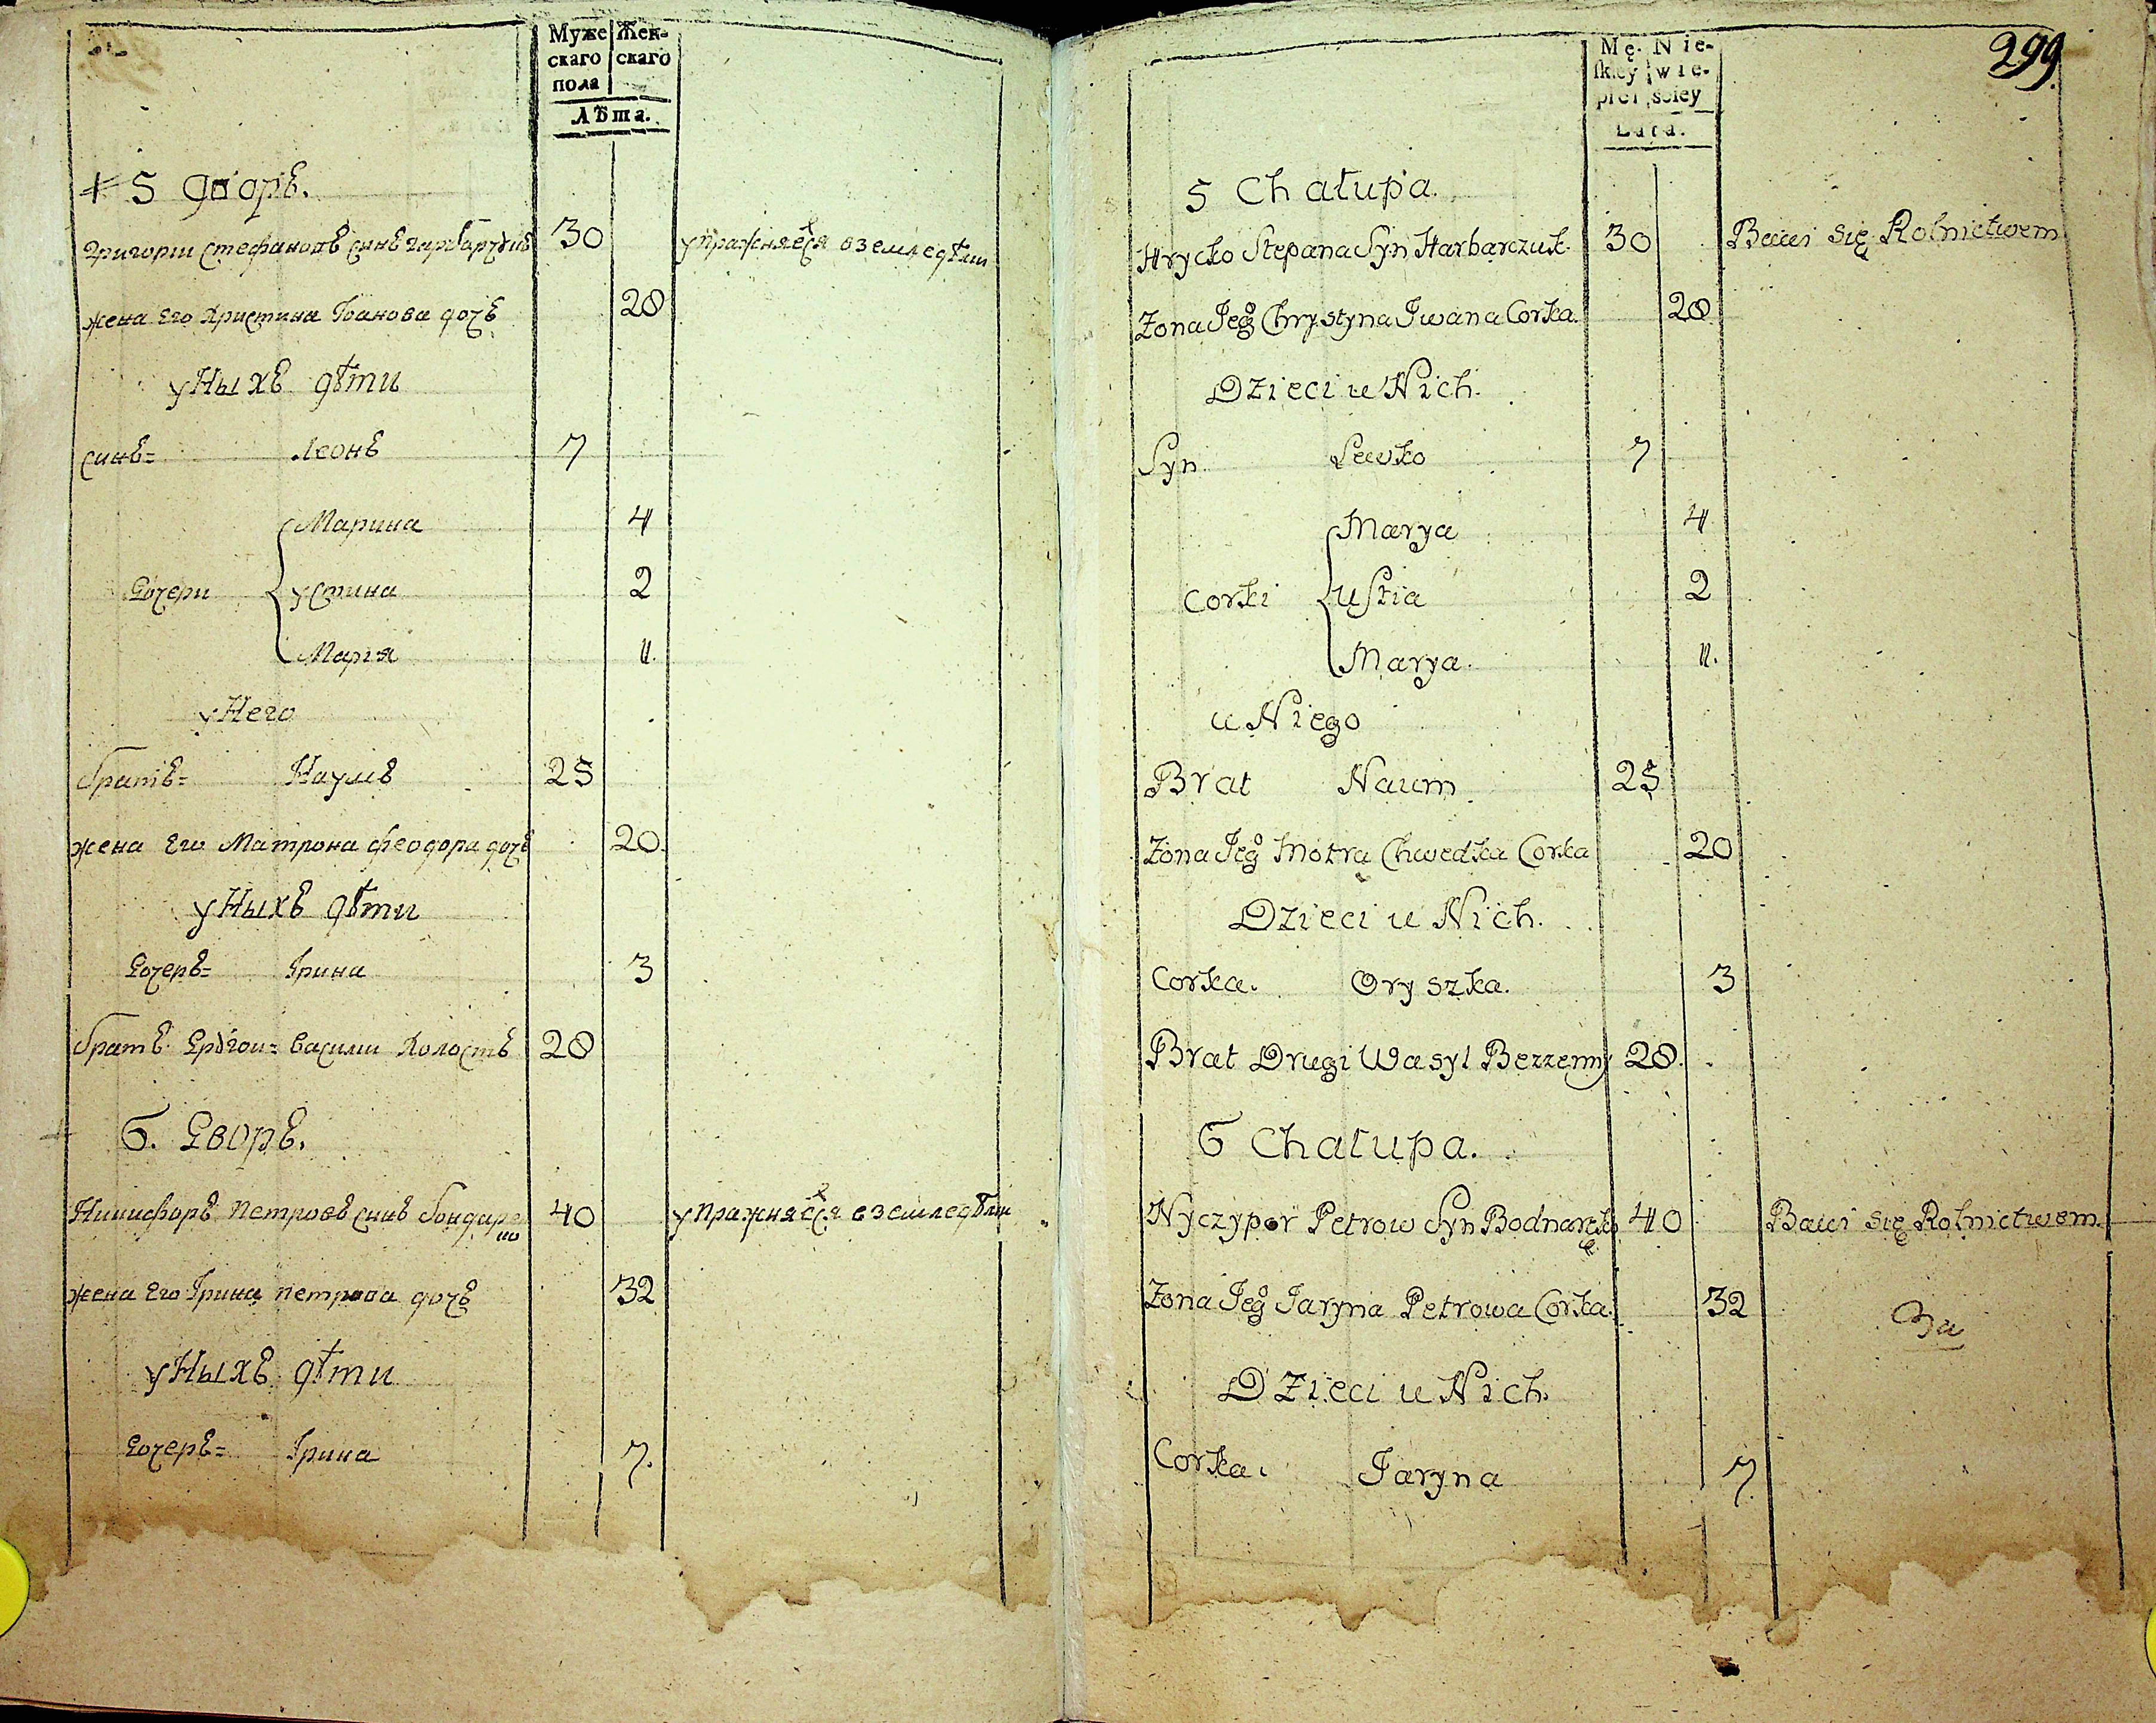 Муже Жен-
скаго скаго
пола
Лѣта.
5 дворъ.
Григории Стефановъ синъ Гарбарчукъ 30 упражняется вземледѣлии
жена Его Христина Іванова дочъ 28
уНыхъ дѣти
синъ= Леонъ 7
Марина 4
Дочери устина 2
Марія 11.
уНего
братъ= Наумъ 25
жена Его Матрона феодора дочъ 20.
уНыхъ дѣти
Дочеръ= Ірина 3
братъ Другои= Василии Холостъ 28
6. Дворъ.
Никифоръ Петровъ синъ бондаре 40 упражняется вземледѣлии
жена Его Ірина петрова дочъ 32
уНыхъ дѣти
Дочеръ= Ірина 7.
299.
Mę- Nie-
ſkiey wie-
płci sciey
Lata.
5 Chałupa.
Hrycko Stepana Syn Harbarczuk. 30 Bawi się Rolnictwem
Zona Jeg° Chrystyna Jwana Corka. 28.
Dzieci u Nich.
Syn Lewko 7
Marya 4
Corki Uſtia 2
Marya. 11.
u Niego
Brat Naum 25
Zona Jeg° Motra Chwedka Corka 20
Dzieci u Nich.
Corka. Oryszka. 3
Brat Drugi Wasyl Bezzenny 28.
6 Chałupa.
Nyczypor Petrow Syn Bodnarcz 40 Bawi się Rolnictwem
Zona Jeg° Jaryna Petrowa Corka. 32
За
Dzieci u Nich.
Corka. Jaryna 7.